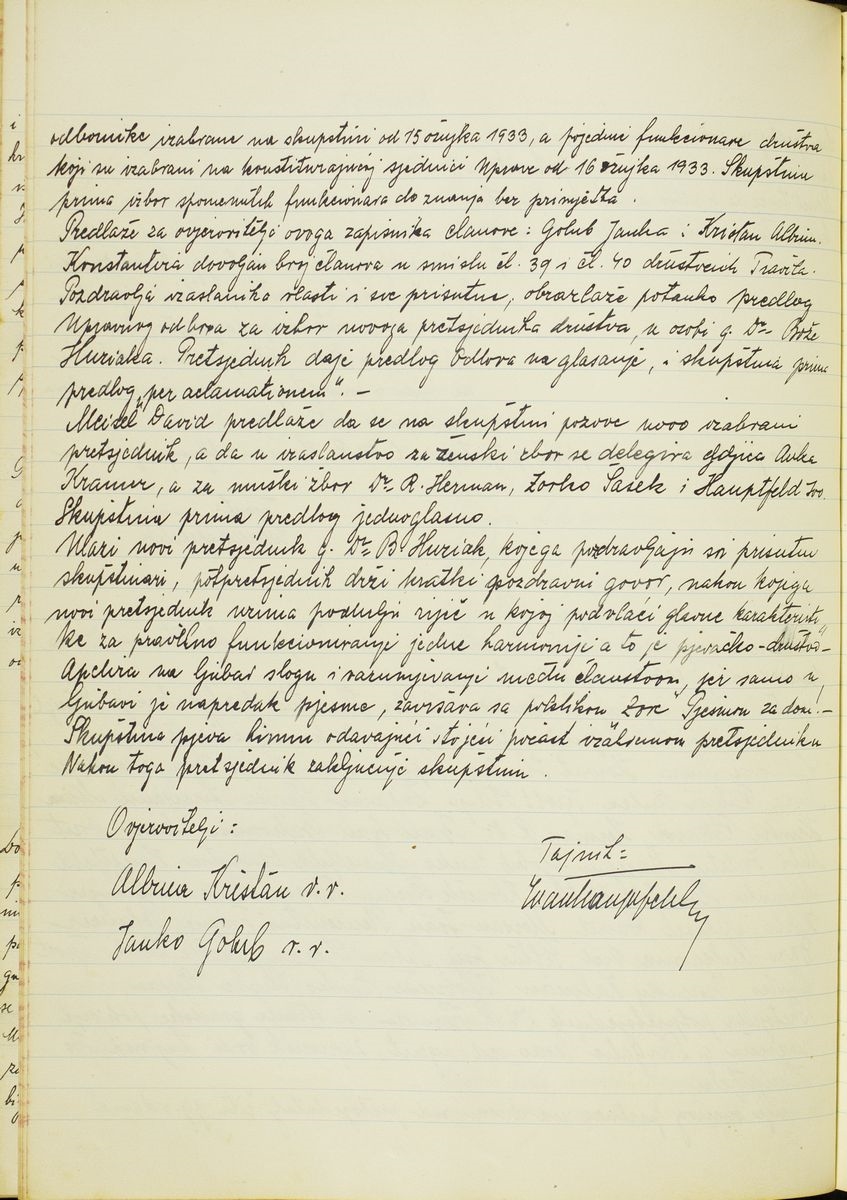 odbornike izabrane na skupštini od 15 ožujka 1933, a pojedine funkcionare društva
koji su izabrani na konstituirajućoj sjednici Uprave od 16 ožujka 1933. Skupština
prima izbor spomenutih funkcionara do znanja bez primjetka.
Predlaže za ovjerovitelje ovoga zapisnika članove: Golub Janka i Kristan Albina.
Konstantira dovoljan broj članova u smislu čl. 39 i čl. 40 društvenih Pravila.
Pozdravlja izaslanika vlasti i sve prisutne, obrazlaže potanko predlog
Upravnog odbora za izbor novoga pretsjednika društva, u osobi g. Dr. Bože
Huziaka. Pretsjednik daje predlog Odbora na glasanje, i skupština prima
predlog „per aclamationem". —
Meisel David predlaže da se na skupštini pozove novo izabrani
pretsjednik, a da u izaslanstvo za ženski zbor se delegira gdjica Anka
Kramer, a za muški zbor Dr. R. Herman, Zorko Šašek i Hauptfeld Ivo.
Skupština prima predlog jednoglasno.
Ulazi novi pretsjednik g. Dr. B. Huziak, kojega pozdravljaju svi prisutni
skupštinari, potpretsjednik drži kratki pozdravni govor, nakon kojega
novi pretsjednik uzima podulju riječ u kojoj podvlači glavne karakteristi„
ke za pravilno funkcioniranje jedne harmonije a to je pjevačko-društvo—
Apelira na ljubav slogu i razumjevanje među članstvom, jer samo u
ljubavi je napredak pjesme, završava sa poklikom Zore „Pjesmom za dom!—
Skupština pjeva himnu odavajući stojeći počast uzališnom pretsjedniku
Nakon toga pretsjednik zaključuje skupštinu.
Ovjerovitelji:
Tajnik=
Albin Kristan v. r.
Ivan Hauptfeld
Janko Golub v. r.